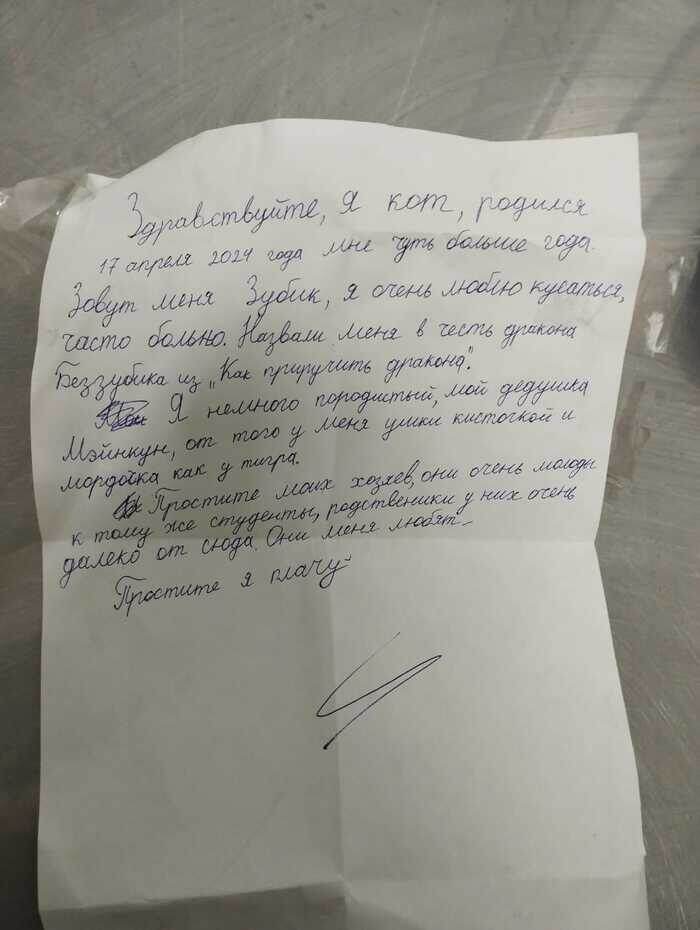 Здравствуйте, я кот, родился
17 апреля 2024 года мне чуть больше года.
Зовут меня Зубик, я очень люблю кусаться,
часто больно. Назвали меня в честь дракона
Беззубика из "Как приручить дракона".
Я немного породистый, мой дедушка
Мэйнкун, от того у меня ушки кисточкой и
мордочка как у тигра.
Простите моих хозяев, они очень молоды
к тому же студенты, родственики у них очень
далеко от сюда. Они меня любят_
Простите я плачу_